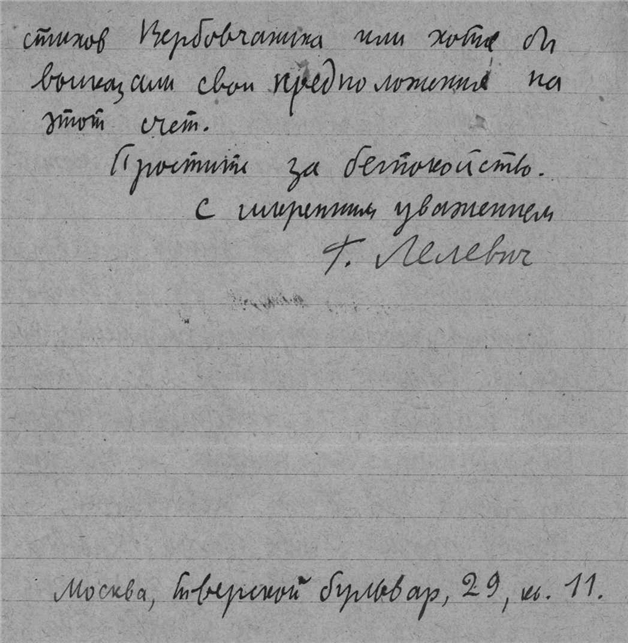 стихов Вербовчанина или хотя бы
высказали свои предположения на
этот счет.
Простите за беспокойство.
С искренним уважением
Г. Лелевич
Москва, Тверской бульвар, 29, кв. 11.